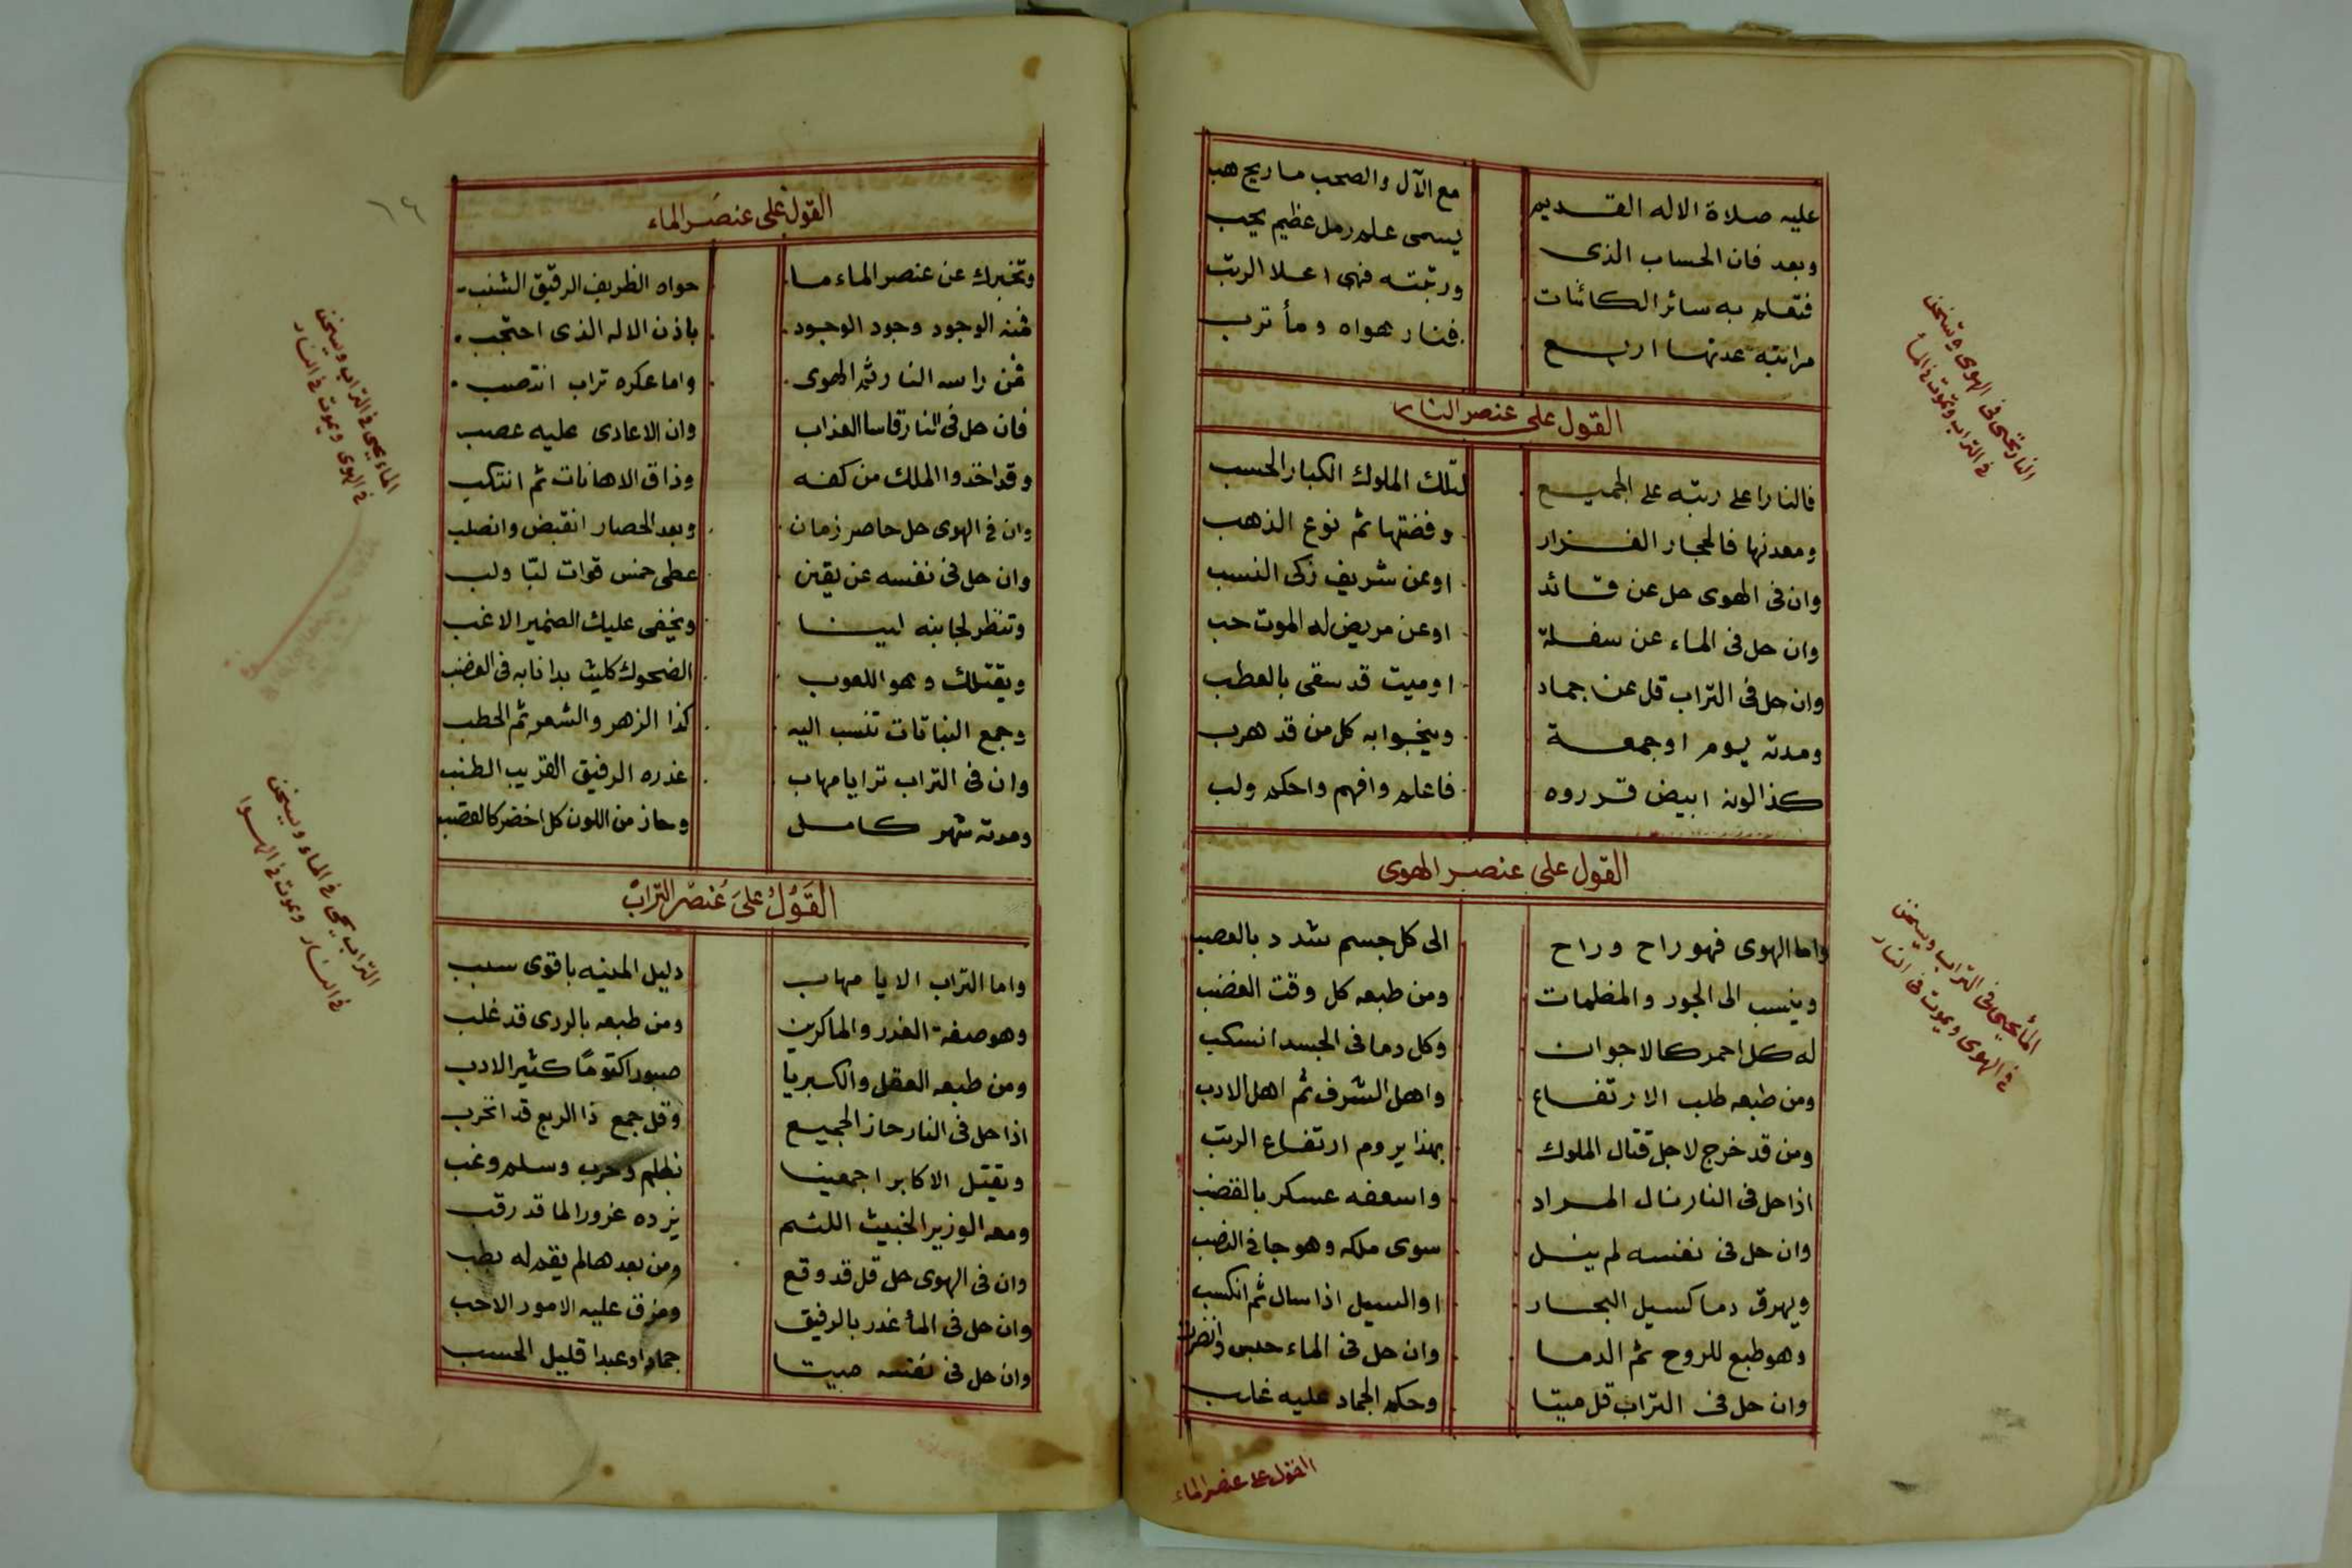 عليه صلاة الاله القديم مع الآل والصحب ما ريح هب
وبعد فان الحساب الذى يسمى علم رمل عظيم يحب
فتعلم به سائر الكائنات ورتبته فهى اعلا الرتب
مراتبه عدتها اربع فنار هواه ومأ ترب
القول على عنصر النار
فالنار اعلى رتبه على الجميع لتلك الملوك الكبار الحسب
ومعدنها فالحجار الغزار وفضتها ثم نوع الذهب
وان فى الهوى حل عن قائد اوعن شريف زكى النسب
وان حل فى الماء عن سفلة اوعن مريض له الموت حب
وان حل فى التراب قل عن جماد اوميت قد سقى بالعطب
ومدته يوم اوجمعة وينجوا به كل من قد هرب
كذا لونه ابيض قرروه فاعلم وافهم واحكم ولب
القول على عنصر الهوى
واما الهوى فهو راح وراح الى كل جسم شدد بالعصب
وينسب الى الجور والمظلمات ومن طبعه كل وقت الغضب
له كل احمر كالاجوان وكل دما فى الجسد انسكب
ومن طبعه طلب الارتفاع واهل الشرف ثم اهل الادب
ومن قد خرج لاجل قتال الملوك بهذا يروم ارتفاع الرتب
اذا حل فى النار نال المراد واسعفه عسكر بالقضب
وان حل فى نفسه لم ينل سوى ملكه وهو جا فى النصب
ويهرق دما كسيل البحار اوالسيل اذا سال ثم انكسب
وهو طبع للروح ثم الدما وان حل فى الماء حبس وانضرب
وان حل فى التراب قل ميتا وحكم الجماد عليه غلب
القول على عنصر الماء
النار تحيى فى الهوى وتسخن
فى التراب وتموت فى المأ
المأ يحيى فى التراب ويسخن
فى الهوى ويموت فى النار
١٦
القول على عنصر الماء
وتخبرك عن عنصر الماء ما حواه الظريف الرقيق الشنب
فمنه الوجود وجود الوجود باذن الاله الذى احتجب
فمن راسه النار ثم الهوى واما عكره تراب انتصب
فان حل فى النار قاسا العذاب وان الاعادى عليه عصب
وقد اخذوا الملك من كفه وذاق الاهانات ثم انتكب
وان فى الهوى حل حاصر زمان وبعد الحصار انقبض وانصلب
وان حل فى نفسه عن يقين عطى خمس قوات لبّا ولب
وتنظر لجانبه لينا ويخفى عليك الضمير الاغب
ويقتلك وهو اللعوب الضحوك كليث بدا نابه فى الغضب
وجمع النباتات تنسب اليه كذا الزهر والشعر ثم الحطب
وان فى التراب ترا يا مهاب غدره الرفيق القريب الطنب
ومدته شهر كامل وحاز من اللون كل اخضر كالقصب
القول على عنصر التراب
واما التراب الا يا مهاب دليل المنيه باقوى سبب
وهو صفة الغدر والماكرين ومن طبعه بالردى قد غلب
ومن طبعه العقل والكبريا صبورا كتومًا كثير الادب
اذا حل فى النار حاز الجميع وقل جمع ذا الربع قد اخرب
ويقتل الاكابر اجمعينا بظلم وحرب وسلم وغب
ومعه الوزير الخبيث اللئم غرور الما قد رقب
وان فى الهوى حل قل قد وقع ومن بعدها لم يقم له
وان حل فى المأ غدر بالرفيق ومزق عليه الامور الاحب
وان حل فى نفسه ميتا جماد اوعبدا قليل الحسب
الماء يحيى فى التراب ويسخن
فى الهوى ويموت فى النار
التراب يحيى فى الماء ويسخن
فى النار ويموت فى الهوا